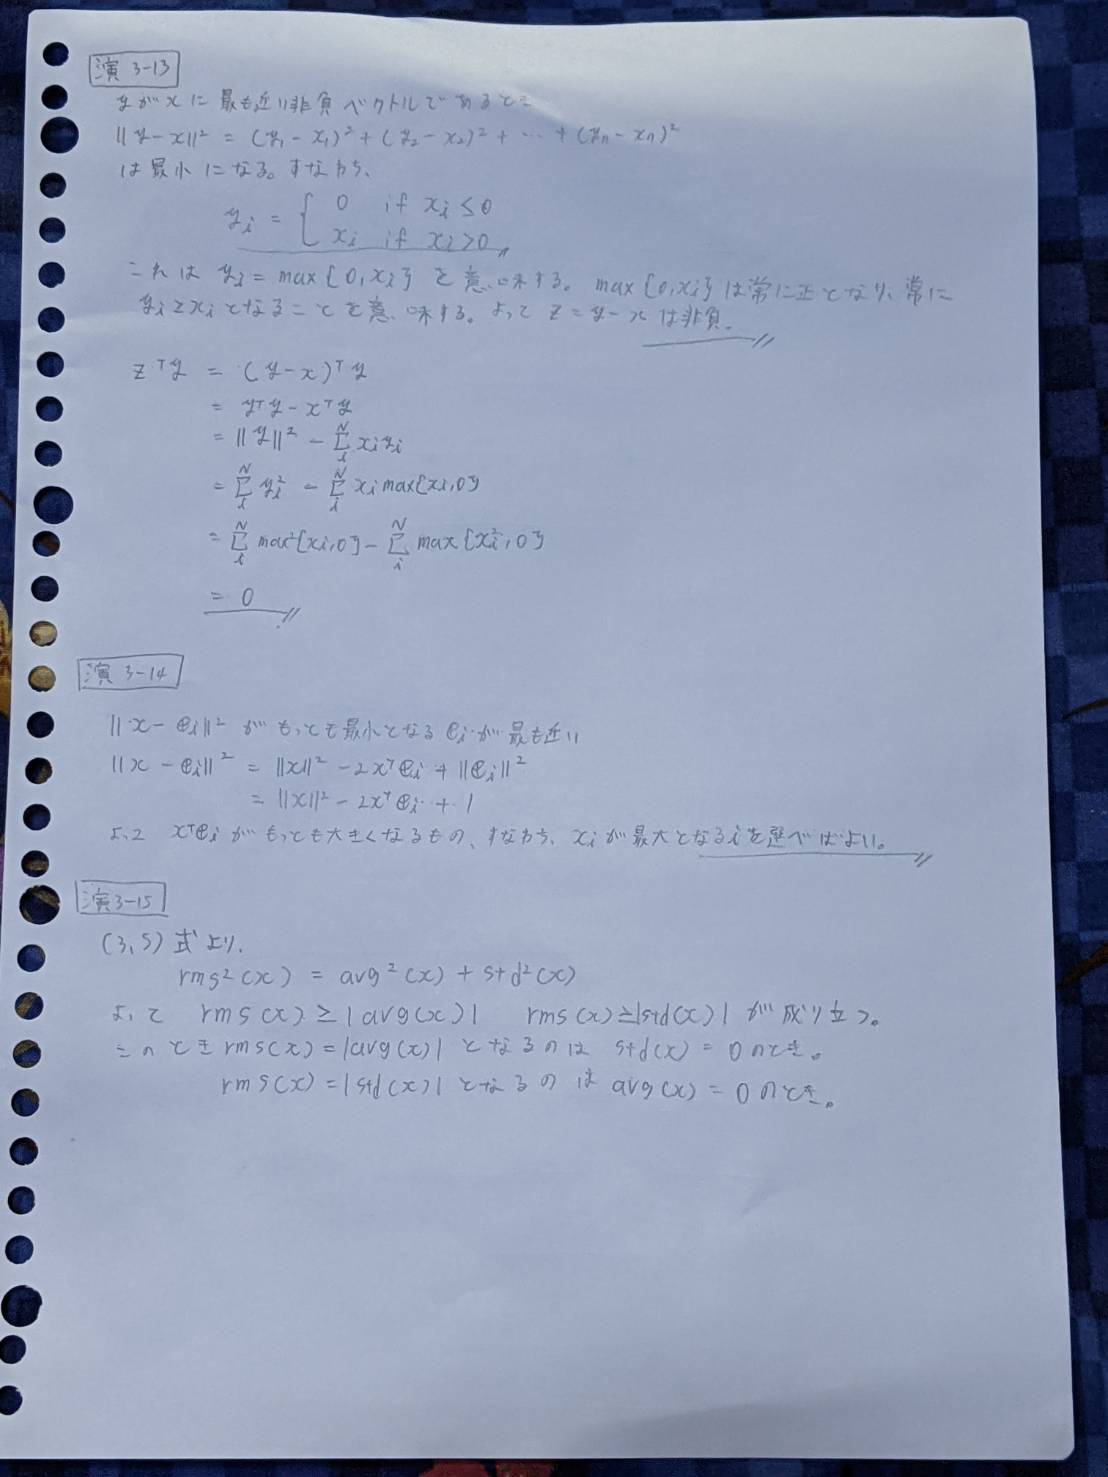 演 3-13
yがxに最も近い非負ベクトルであるとき
||y-x||² = (y₁-x₁)² + (y₂-x₂)² + … + (yₙ-xₙ)²
は最小になる。すなわち、
yᵢ = { 0 if xᵢ ≤ 0
xᵢ if xᵢ > 0
これは yᵢ = max{0, xᵢ} を意味する。 max{0, xᵢ} は常に正となり、常に
yᵢ ≥ xᵢ となることを意味する。よって z = y - x は非負。
zᵀy = (y-x)ᵀy
= yᵀy - xᵀy
= ||y||² - Σᵢᴺ xᵢyᵢ
= Σᵢᴺ yᵢ² - Σᵢᴺ xᵢ max{xᵢ, 0}
= Σᵢᴺ max²{xᵢ, 0} - Σᵢᴺ max{xᵢ², 0}
= 0
演 3-14
||x-eᵢ||² がもっとも最小となる eᵢ が最も近い
||x-eᵢ||² = ||x||² - 2xᵀeᵢ + ||eᵢ||²
= ||x||² - 2xᵀeᵢ + 1
よって xᵀeᵢ がもっとも大きくなるもの、すなわち、xᵢが最大となるiを選べばよい。
演3-15
(3,5) 式より、
rms²(x) = avg²(x) + std²(x)
よって rms(x) ≥ |avg(x)| rms(x) ≥ |std(x)| が成り立つ。
このとき rms(x) = |avg(x)| となるのは std(x) = 0 のとき。
rms(x) = |std(x)| となるのは avg(x) = 0 のとき。